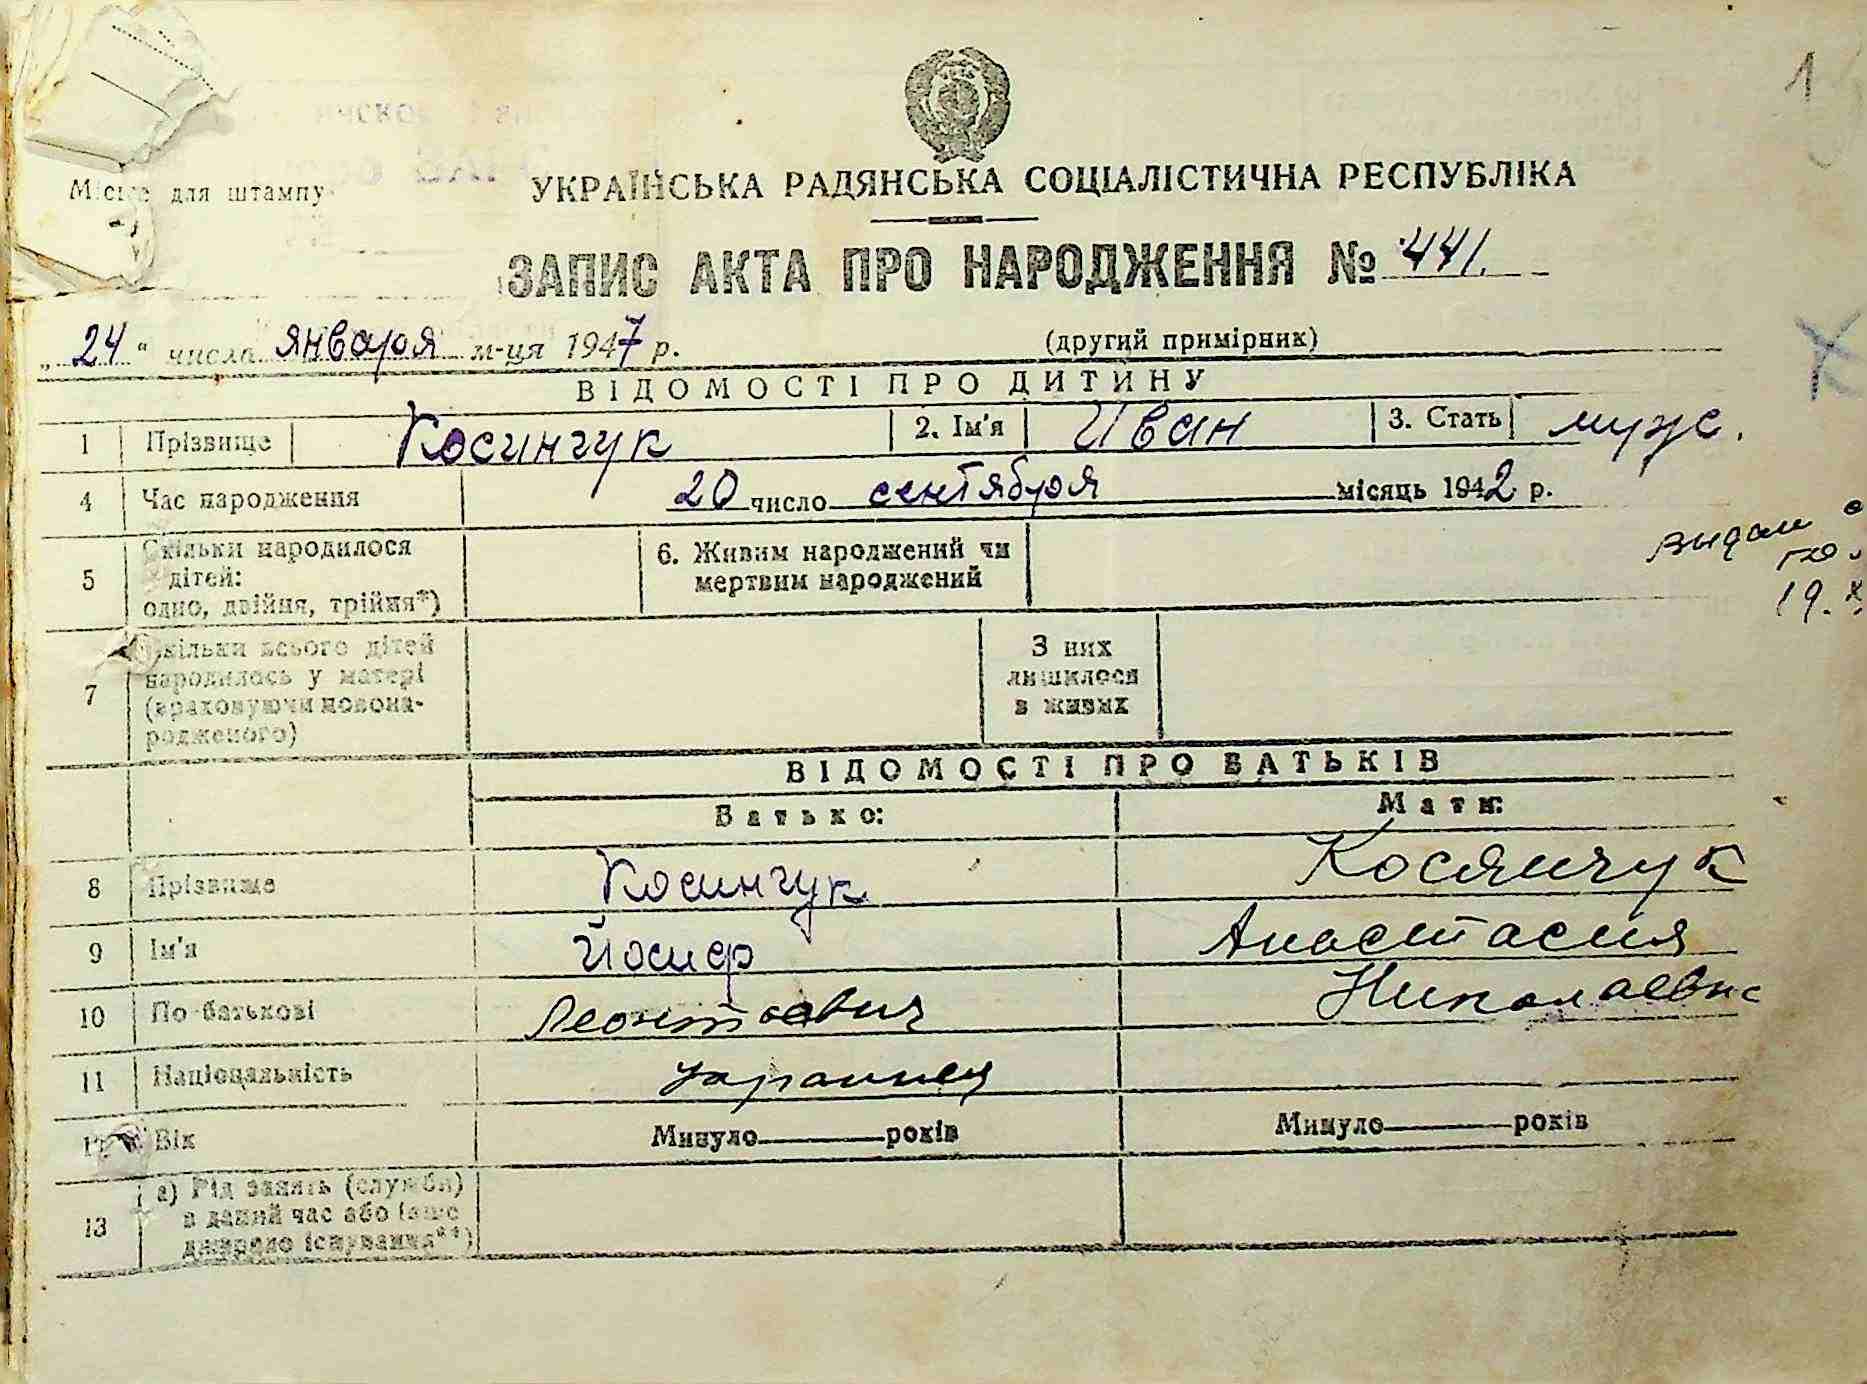 1
Місце для штампу
УКРАЇНСЬКА РАДЯНСЬКА СОЦІАЛІСТИЧНА РЕСПУБЛІКА
ЗАПИС АКТА ПРО НАРОДЖЕННЯ № 441.
„24“ числа января м-ця 1947 р. (другий примірник)
ВІДОМОСТІ ПРО ДИТИНУ
1 Прізвище Косинчук 2. Ім'я Иван 3. Стать муж.
4 Час народження 20 число сентября місяць 1942 р.
5 Скільки народилося дітей: одно, двійня, трійня*) 6. Живим народжений чи мертвим народжений
7 Скільки всього дітей народилось у матері (враховуючи новонародженого) З них лишилося в живих
видали
19.
ВІДОМОСТІ ПРО БАТЬКІВ
Батько: Мати:
8 Прізвище Косинчук Косянчук
9 Ім'я Йосиф Анастасия
10 По-батькові Леонтьевич Николаевна
11 Національність украинец
12 Вік Минуло року Минуло років
13 а) Рід занять (служби) в даний час або інше джерело існування**)